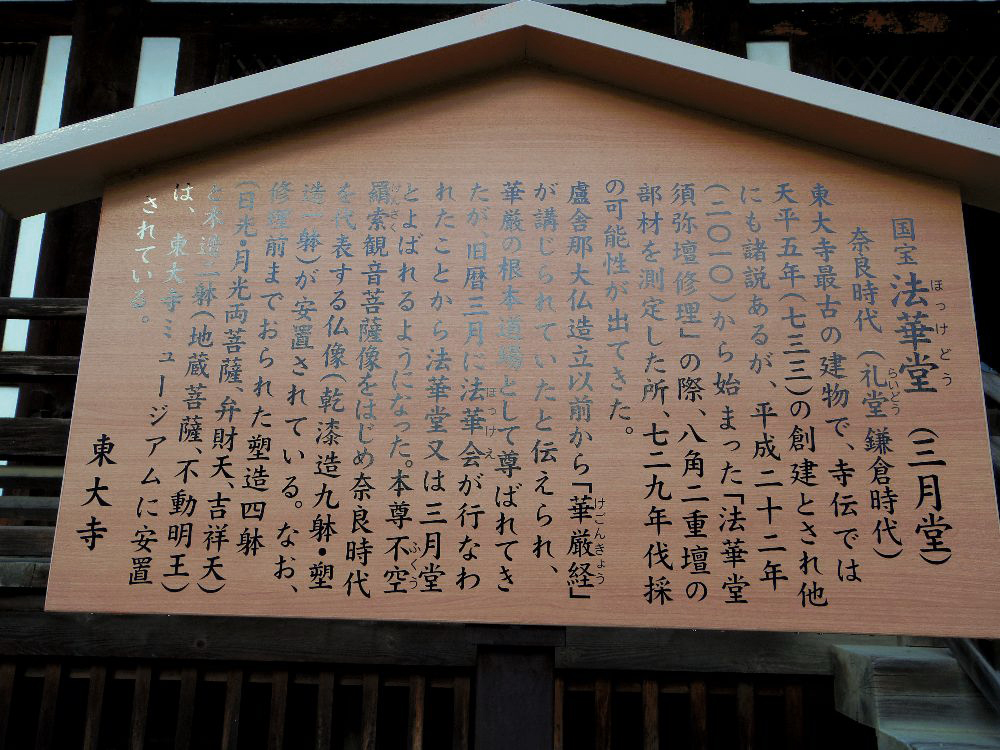 国宝 法華堂(三月堂)
ほっけどう
奈良時代(礼堂 鎌倉時代)
らいどう
東大寺最古の建物で、寺伝では
天平五年(七三三)の創建とされ他
にも諸説あるが、平成二十二年
(二〇一〇)から始まった「法華堂
須弥壇修理」の際、八角二重壇の
部材を測定した所、七二九年伐採
の可能性が出てきた。
盧舎那大仏造立以前から「華厳経」
けごんきょう
が講じられていたと伝えられ、
華厳の根本道場として尊ばれてき
たが、旧暦三月に法華会が行なわ
ほっけえ
れたことから法華堂又は三月堂
とよばれるようになった。本尊不空
ふくう
羂索観音菩薩像をはじめ奈良時代
けんさく
を代表する仏像(乾漆造九躰・塑
造一躰)が安置されている。なお、
修理前までおられた塑造四躰
(日光・月光両菩薩、弁財天、吉祥天)
と木造二躰(地蔵菩薩、不動明王)
は、東大寺ミュージアムに安置
されている。
東大寺